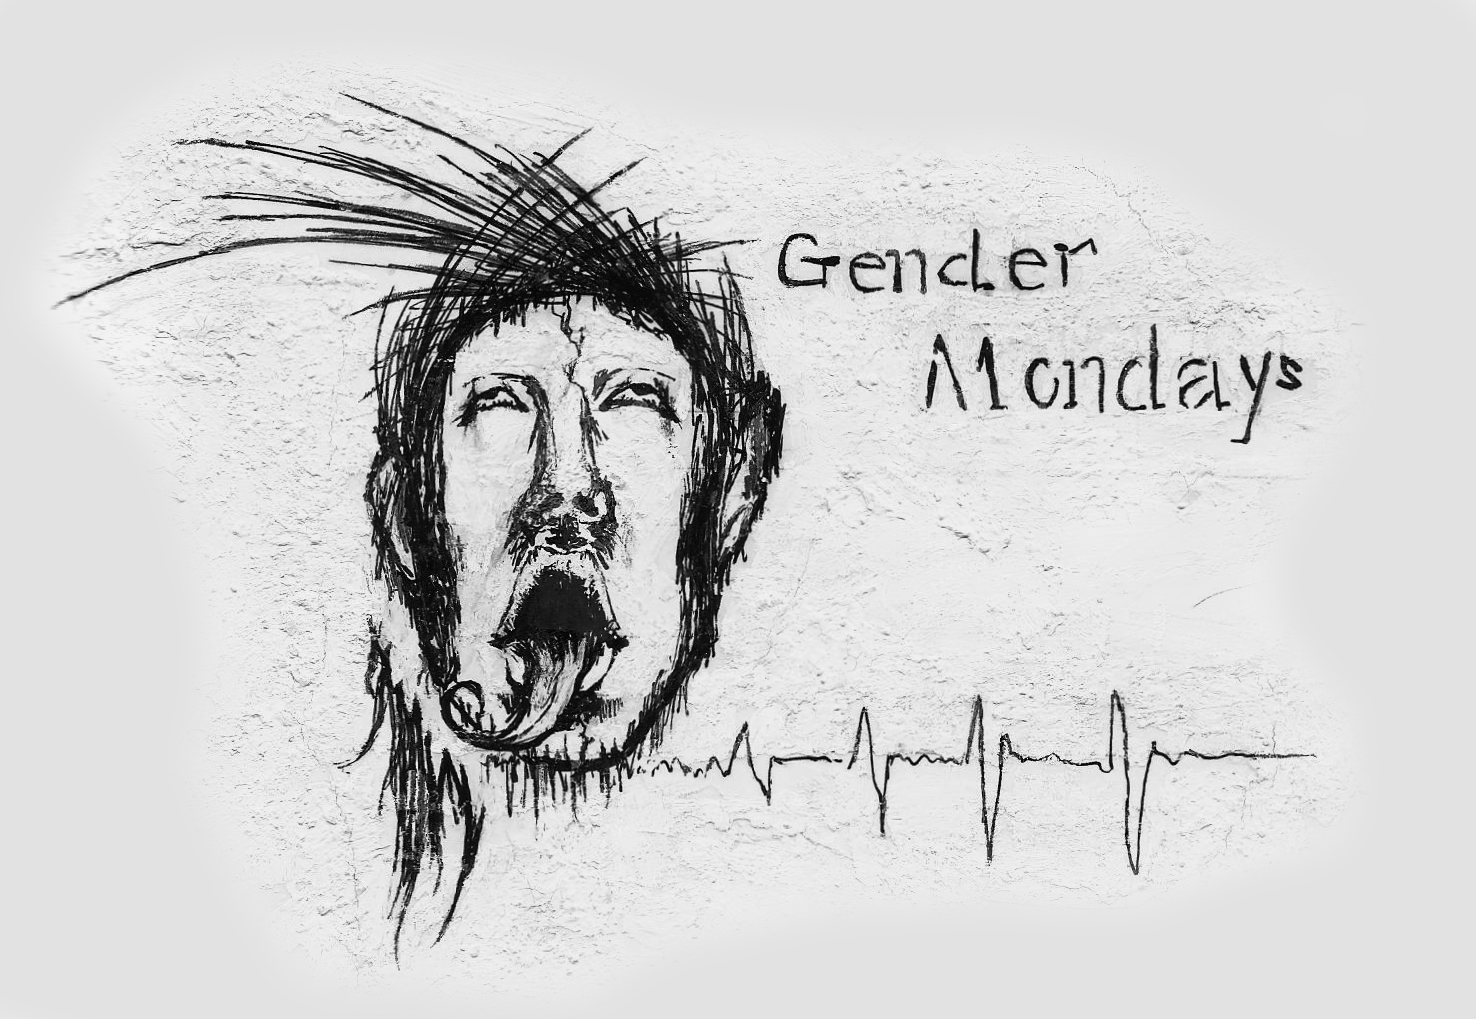 Gender
Mondays